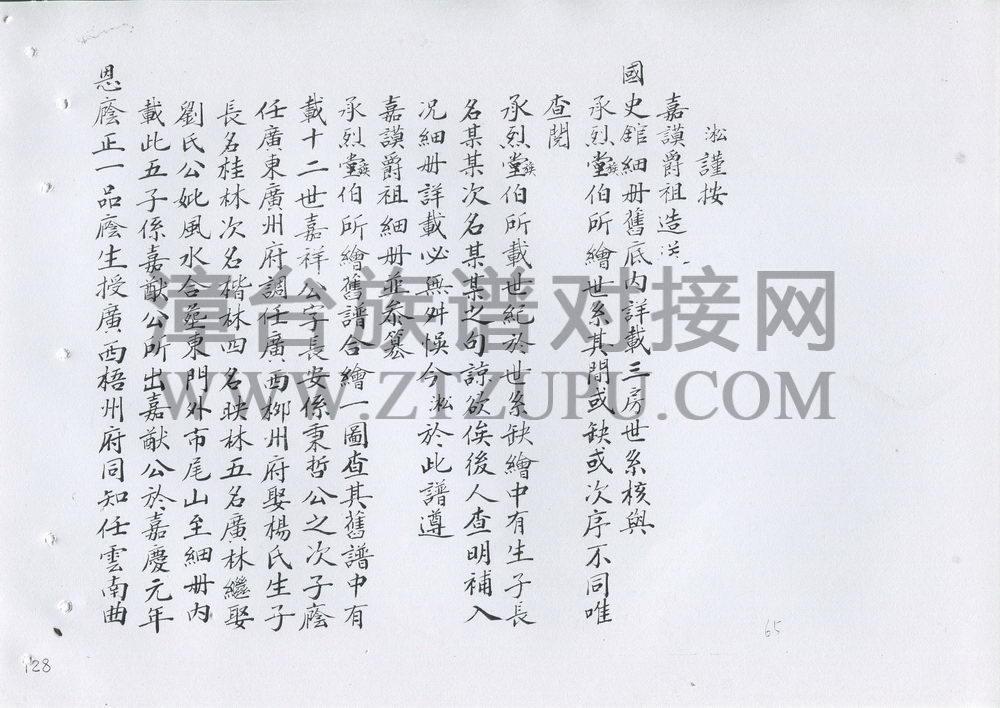 淞謹按
嘉謨爵祖造送
國史舘細册舊底内詳載三房世系核與
承烈堂族伯所繪世系其間或缺或次序不同唯
查閱
承烈堂族伯所載世紀於世系缺繪中有生子長
名某某次名某某之句諒欲俟後人查明補入
况細册詳載必無舛悮今淞於此譜遵
嘉謨爵祖細册並叅纂
承烈堂族伯所繪舊譜合繪一圖查其舊譜中有
載十二世嘉祥公字長安係秉哲公之次子廕
任廣東廣州府調任廣西柳州府娶楊氏生子
長名桂林次名楷林四名映林五名廣林繼娶
劉氏公妣風水合塟東門外市尾山至細册内
載此五子係嘉猷公所出嘉猷公於嘉慶元年
恩廕正一品廕生授廣西梧州府同知任雲南曲
漳台族谱对接网
WWW.ZTZUPU.COM
65
128